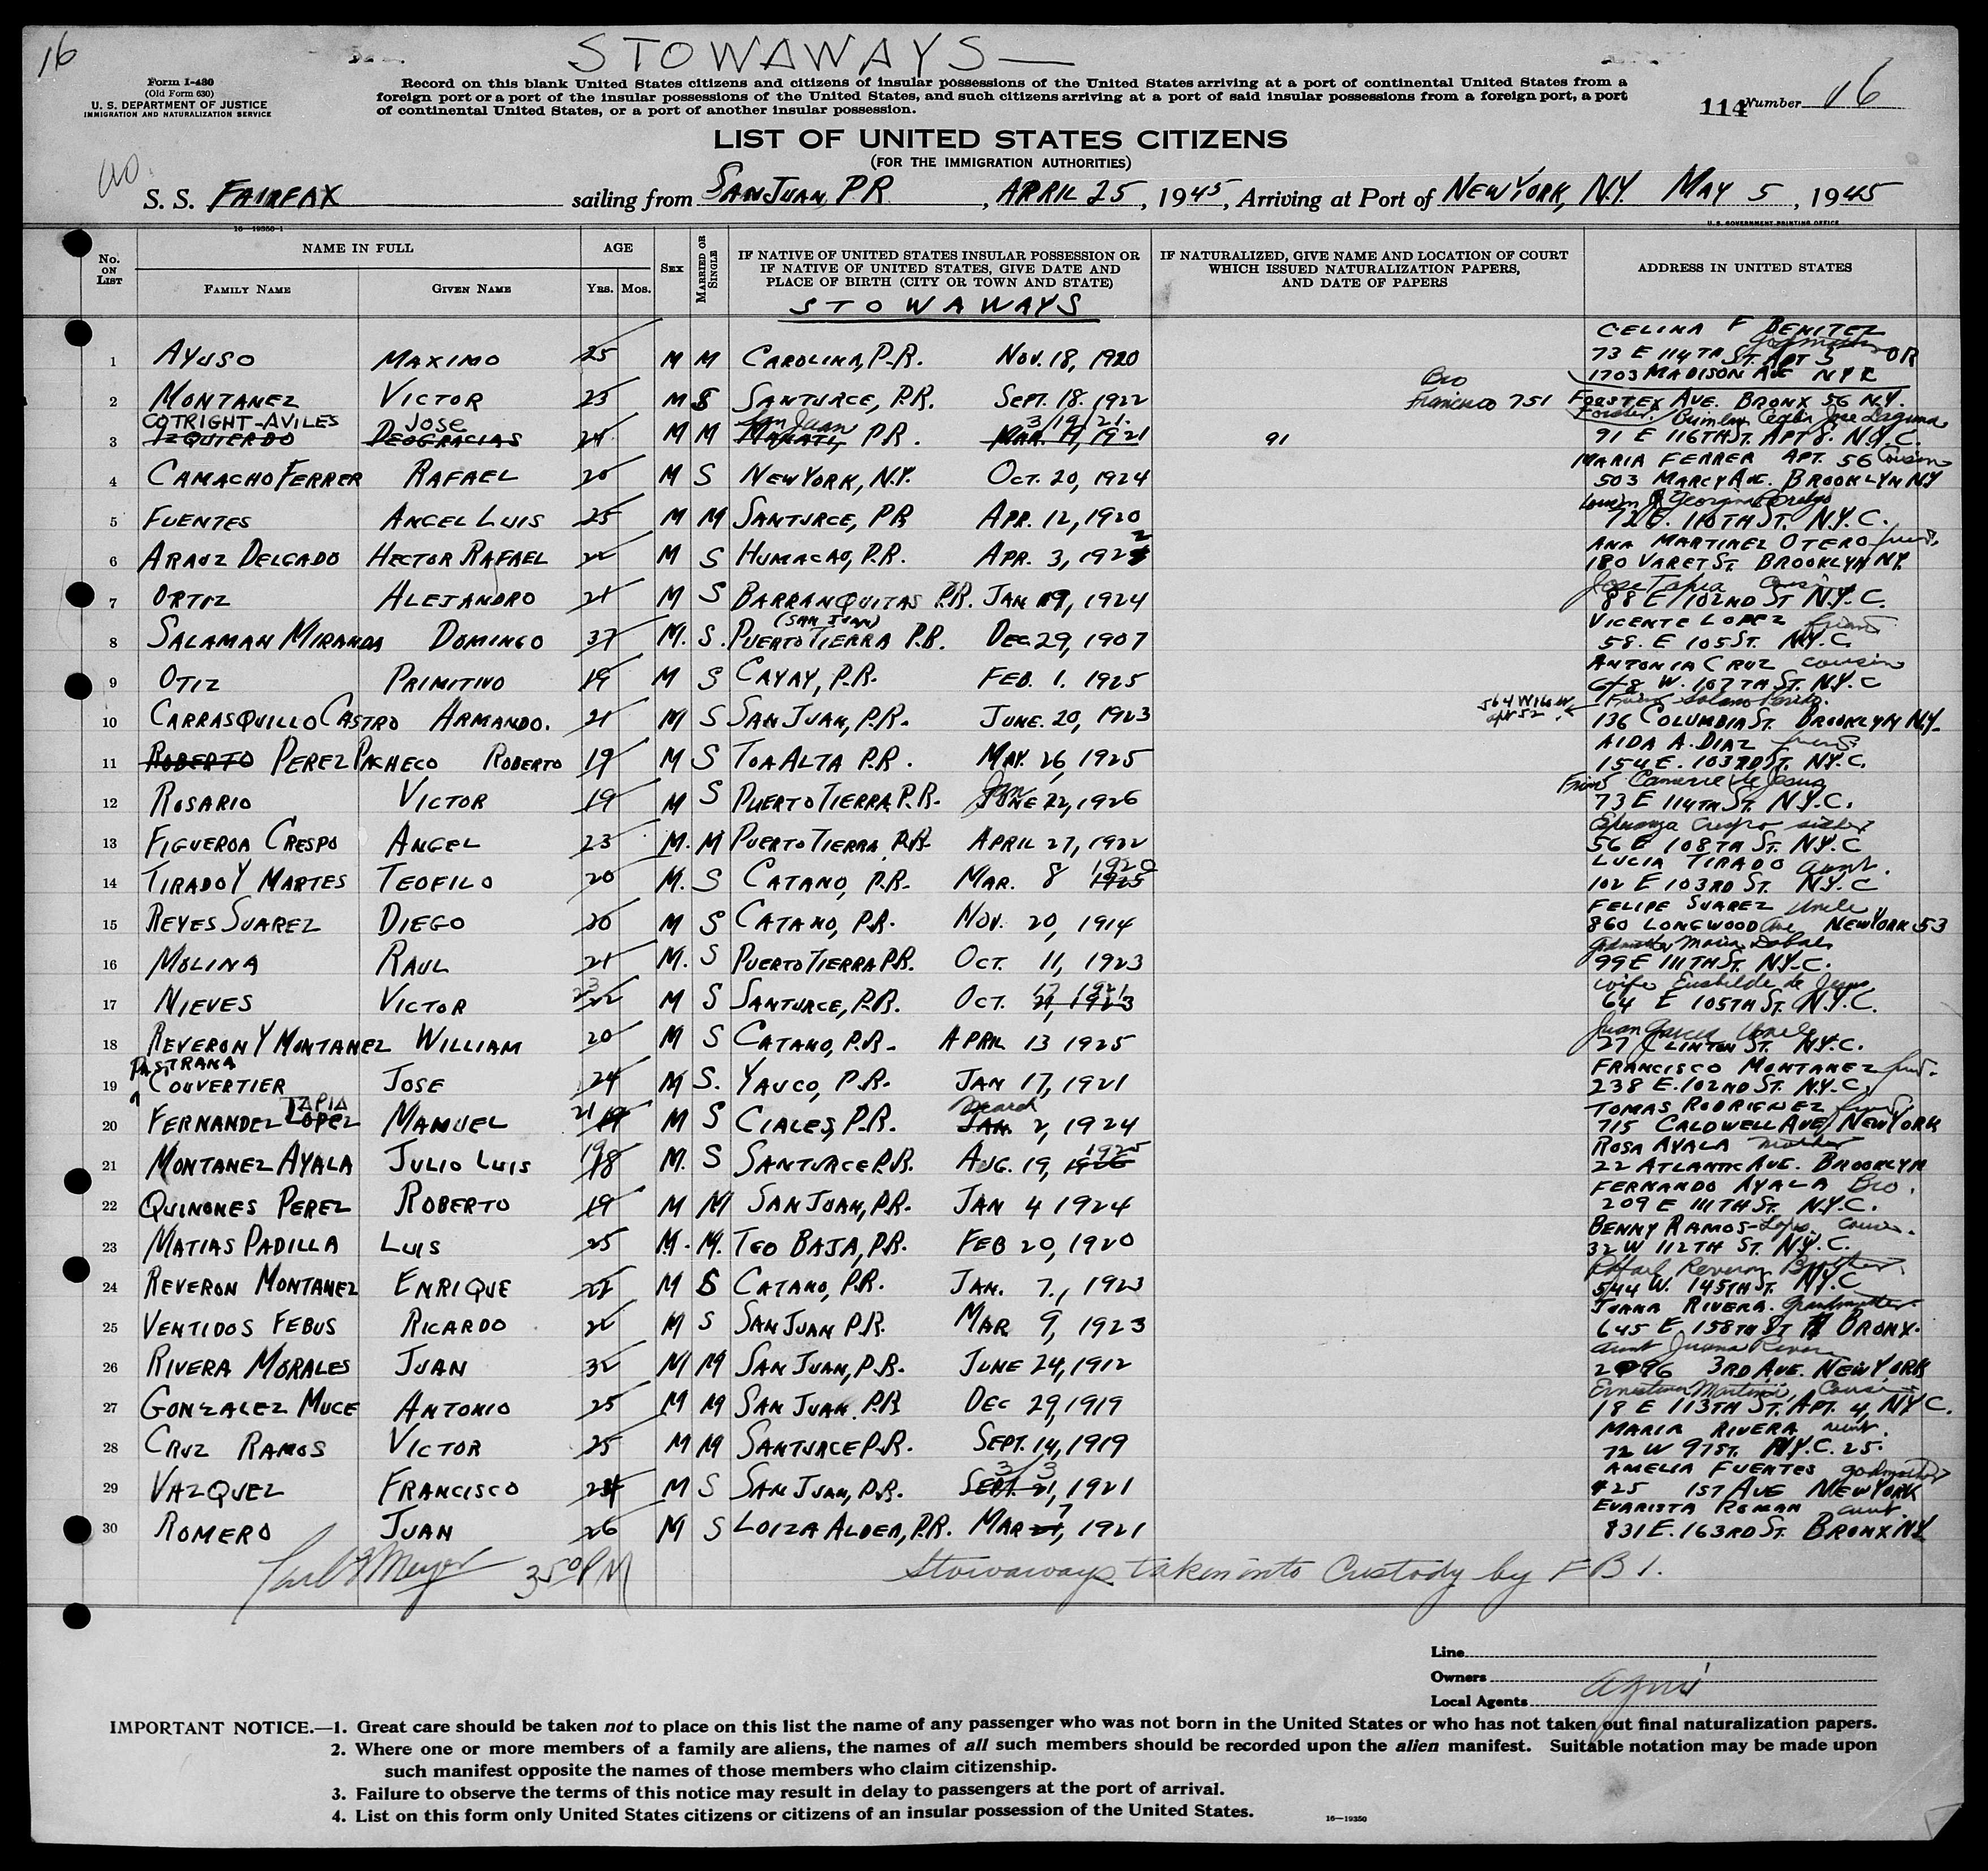 16
STOWAWAYS—
Form I-430
(Old Form 630)
U. S. DEPARTMENT OF JUSTICE
IMMIGRATION AND NATURALIZATION SERVICE
Record on this blank United States citizens and citizens of insular possessions of the United States arriving at a port of continental United States from a
foreign port or a port of the insular possessions of the United States, and such citizens arriving at a port of said insular possessions from a foreign port, a port
of continental United States, or a port of another insular possession.
114 Number 16
LIST OF UNITED STATES CITIZENS
(FOR THE IMMIGRATION AUTHORITIES)
S. S. FAIRFAX sailing from SAN JUAN, P.R. , APRIL 25, 1945, Arriving at Port of NEW YORK, N.Y. MAY 5, 1945
16—19350-1
U. S. GOVERNMENT PRINTING OFFICE
No. ON LIST
NAME IN FULL
FAMILY NAME
GIVEN NAME
AGE
YRS. MOS.
SEX
MARRIED OR SINGLE
IF NATIVE OF UNITED STATES INSULAR POSSESSION OR
IF NATIVE OF UNITED STATES, GIVE DATE AND
PLACE OF BIRTH (CITY OR TOWN AND STATE)
IF NATURALIZED, GIVE NAME AND LOCATION OF COURT
WHICH ISSUED NATURALIZATION PAPERS,
AND DATE OF PAPERS
ADDRESS IN UNITED STATES
STOWAWAYS
CELINA F BENITEZ
1 AYUSO MAXIMO 25 M M CAROLINA, P.R. NOV. 18, 1920 73 E 114TH ST. APT 5 OR
1703 MADISON AVE NYC
Bro
2 MONTANEZ VICTOR 23 M S SANTURCE, P.R. SEPT. 18. 1922 Francisco 751 FORSTEX AVE. BRONX 56 N.Y.
COTRIGHT-AVILES JOSE San Juan 3/19/21. Jose Laguna
3 IZQUIERDO DEOGRACIAS 24 M M MANATI, P.R. MAR. 19, 1921 91 91 E 116TH ST. APT 8. N.Y.C.
MARIA FERRER APT. 56 Cousin
4 CAMACHO FERRER RAFAEL 20 M S NEW YORK, N.Y. OCT. 20, 1924 503 MARCY AVE. BROOKLYN NY
Georgina
5 FUENTES ANGEL LUIS 25 M M SANTURCE, PR APR. 12, 1920 72 E. 110TH ST. N.Y.C.
ANA MARTINEZ OTERO
6 ARAUZ DELGADO HECTOR RAFAEL M S HUMACAO, P.R. APR. 3, 1922 180 VARET ST BROOKLYN NY.
Jose Tapia cousin
7 ORTIZ ALEJANDRO 21 M S BARRANQUITAS P.R. JAN 19, 1924 88 E 102ND ST N.Y.C.
(SAN JUAN) VICENTE LOPEZ friend
8 SALAMAN MIRANDA DOMINGO 37 M. S. PUERTO TIERRA P.R. DEC 29, 1907 58. E 105 ST. N.Y.C
ANTONIA CRUZ cousin
9 OTIZ PRIMITIVO 19 M S CAYAY, P.R. FEB. 1. 1925 W. 107TH ST. N.Y.C
10 CARRASQUILLO CASTRO ARMANDO. 21 M S SAN JUAN, P.R. JUNE. 20, 1923 136 COLUMBIA ST. BROOKLYN N.Y.
AIDA A. DIAZ
11 ROBERTO PEREZ PACHECO ROBERTO 19 M S TOA ALTA P.R. MAY. 26, 1925 154 E. 103RD ST. N.Y.C.
Jan de Jesus
12 ROSARIO VICTOR 19 M S PUERTO TIERRA P.R. JUNE 22, 1926 73 E 114TH ST. N.Y.C.
Esperanza Crespo sister
13 FIGUEROA CRESPO ANGEL 23 M. M PUERTO TIERRA, P.R. APRIL 27, 1922 56 E 108TH ST. N.Y.C
1920 LUCIA TIRADO aunt.
14 TIRADO Y MARTES TEOFILO 20 M. S CATANO, P.R. MAR. 8 1925 102 E 103RD ST. N.Y.C
FELIPE SUAREZ Uncle
15 REYES SUAREZ DIEGO 30 M S CATANO, P.R. NOV. 20, 1914 860 LONGWOOD Ave NEW YORK 53
16 MOLINA RAUL 21 M. S PUERTO TIERRA P.R. OCT. 11, 1923 99 E 111TH ST. N.Y.C.
23 17 1921 wife Eushilde de Jesus
17 NIEVES VICTOR 22 M S SANTURCE, P.R. OCT. 21, 1923 64 E 105TH ST. N.Y.C.
Juan Garcia Uncle
18 REVERON Y MONTANEZ WILLIAM 20 M S CATANO, P.R. APRIL 13 1925 27 CLINTON ST. N.Y.C.
PASTRANA FRANCISCO MONTANEZ
19 COUVERTIER JOSE 24 M S. YAUCO, P.R. JAN 17, 1921 238 E. 102ND ST. N.Y.C.
TAPIA 21 March TOMAS RODRIGUEZ
20 FERNANDEZ LOPEZ MANUEL 19 M S CIALES, P.R. JAN. 2, 1924 715 CALDWELL AVE NEW YORK
19 1925 ROSA AYALA mother
21 MONTANEZ AYALA JULIO LUIS 18 M. S SANTURCE P.R. AUG. 19, 1926 22 ATLANTIC AVE. BROOKLYN
FERNANDO AYALA Bro.
22 QUINONES PEREZ ROBERTO 19 M M SAN JUAN, P.R. JAN 4 1924 209 E 111TH ST. N.Y.C.
BENNY RAMOS-Lopez, cousin.
23 MATIAS PADILLA LUIS 25 M. M. TEO BAJA, P.R. FEB 20, 1920 32 W 112TH ST. N.Y.C.
Rafael Reveron Brother
24 REVERON MONTANEZ ENRIQUE 22 M S CATANO, P.R. JAN. 7., 1923 544 W. 145TH ST. NYC
JUANA RIVERA. Grandmother
25 VENTIDOS FEBUS RICARDO M S SAN JUAN P.R. MAR 9, 1923 645 E 158TH ST BRONX.
aunt Juana Rivera
26 RIVERA MORALES JUAN 32 M M SAN JUAN, P.R. JUNE 24, 1912 2096 3RD AVE. NEW YORK
Cousin
27 GONZALEZ MUCE ANTONIO 25 M M SAN JUAN P.R. DEC 29, 1919 18 E 113TH ST. APT. 4, NYC.
MARIA RIVERA aunt.
28 CRUZ RAMOS VICTOR 25 M M SANTURCE P.R. SEPT. 14, 1919 72 W 97 ST. N.Y.C. 25.
3/3 AMELIA FUENTES godmother
29 VAZQUEZ FRANCISCO 24 M S SAN JUAN, P.R. SEPT. 21, 1921 425 1ST AVE NEW YORK
7 EVARISTA ROMAN aunt
30 ROMERO JUAN 26 M S LOIZA ALDEA, P.R. MAR 27, 1921 831 E. 163RD ST. BRONX NY
Meyer 350 PM Stowaways taken into Custody by FBI.
Line
Owners
Local Agents
IMPORTANT NOTICE.—1. Great care should be taken not to place on this list the name of any passenger who was not born in the United States or who has not taken out final naturalization papers.
2. Where one or more members of a family are aliens, the names of all such members should be recorded upon the alien manifest. Suitable notation may be made upon
such manifest opposite the names of those members who claim citizenship.
3. Failure to observe the terms of this notice may result in delay to passengers at the port of arrival.
4. List on this form only United States citizens or citizens of an insular possession of the United States.
16—19350